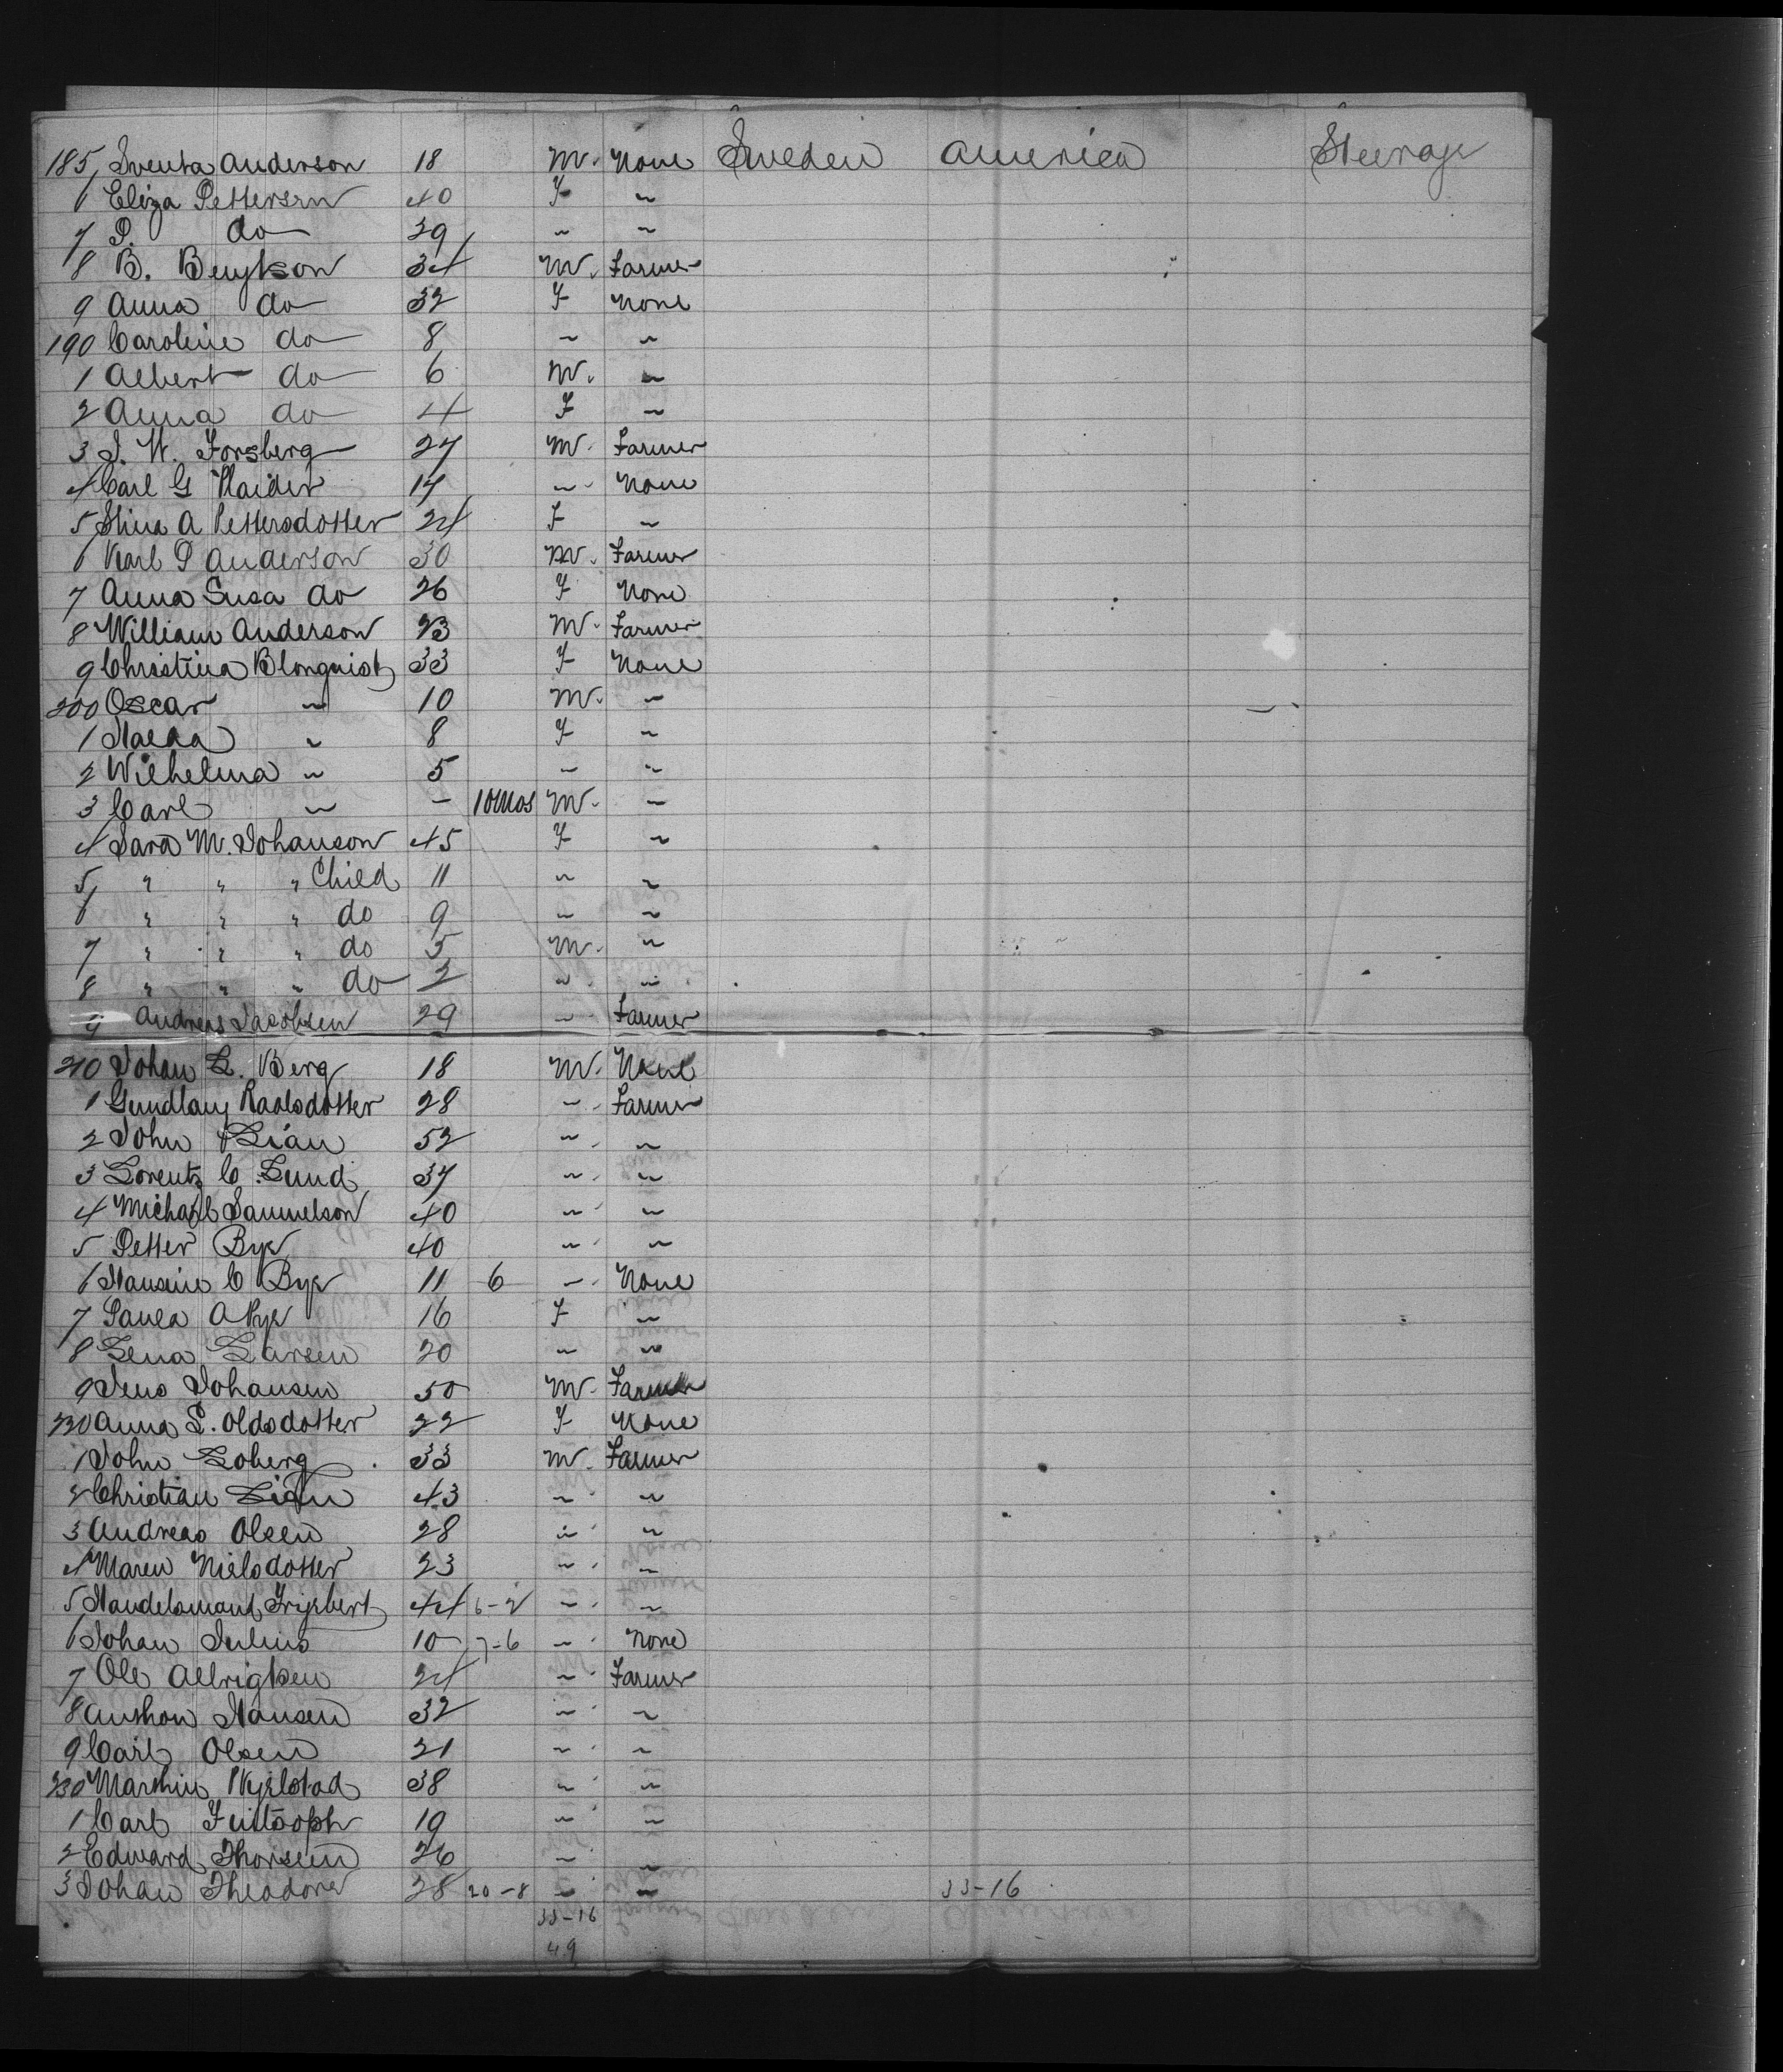 185 Sventa Anderson 18 M. None Sweden America Steerage
6 Eliza Petterson 40 F "
7 P. do 39 " "
8 B. Bengtson 34 M. Farmer
9 Anna do 32 F None
190 Caroline do 8 " "
1 Albert do 6 M. "
2 Anna do 4 F "
3 J. W. Forsberg 27 M. Farmer
4 Carl G 17 " None
5 Stina A Pettersdotter 24 F "
6 Karl P Anderson 30 M. Farmer
7 Anna Susa do 26 F None
8 William Anderson 23 M. Farmer
9 Christina Blonquist 33 F None
200 Oscar " 10 M. "
1 " 8 F "
2 Wilhelmina " 5 " "
3 Carl " - 10 mos M. "
4 Sara M. Johanson 45 F "
5 " " " Child 11 " "
6 " " " do 9 " "
7 " " " do 5 M. "
8 " " " do 2 " "
9 Andreas Jacobsen 29 " Farmer
210 Johan L. Berg 18 M. None
1 28 " Farmer
2 John Lian 52 " "
3 Lorentz C. Lund 37 " "
4 Michael Samuelson 40 " "
5 Petter Bye 40 " "
6 C Bye 11 6 " None
7 Paula A 16 F "
8 Lena Larsen 20 " "
9 Jens Johansen 50 M. Farmer
220 Anna L. Oldsdotter 22 F None
1 John Loberg 33 M. Farmer
2 Christian Lian 43 " "
3 Andreas Olsen 28 " "
4 Maren Nielsdotter 23 " "
5 44 6-2 " "
6 Johan Julius 10 7-6 " None
7 Ole 24 Farmer
8 Anthon Hansen 32 " "
9 Carl Olsen 21 " "
230 Marthin 38 " "
1 Carl 19 " "
2 Edward Thorsen 26 " "
3 Johan Theodore 28 20-8 " " 33-16
33-16
49